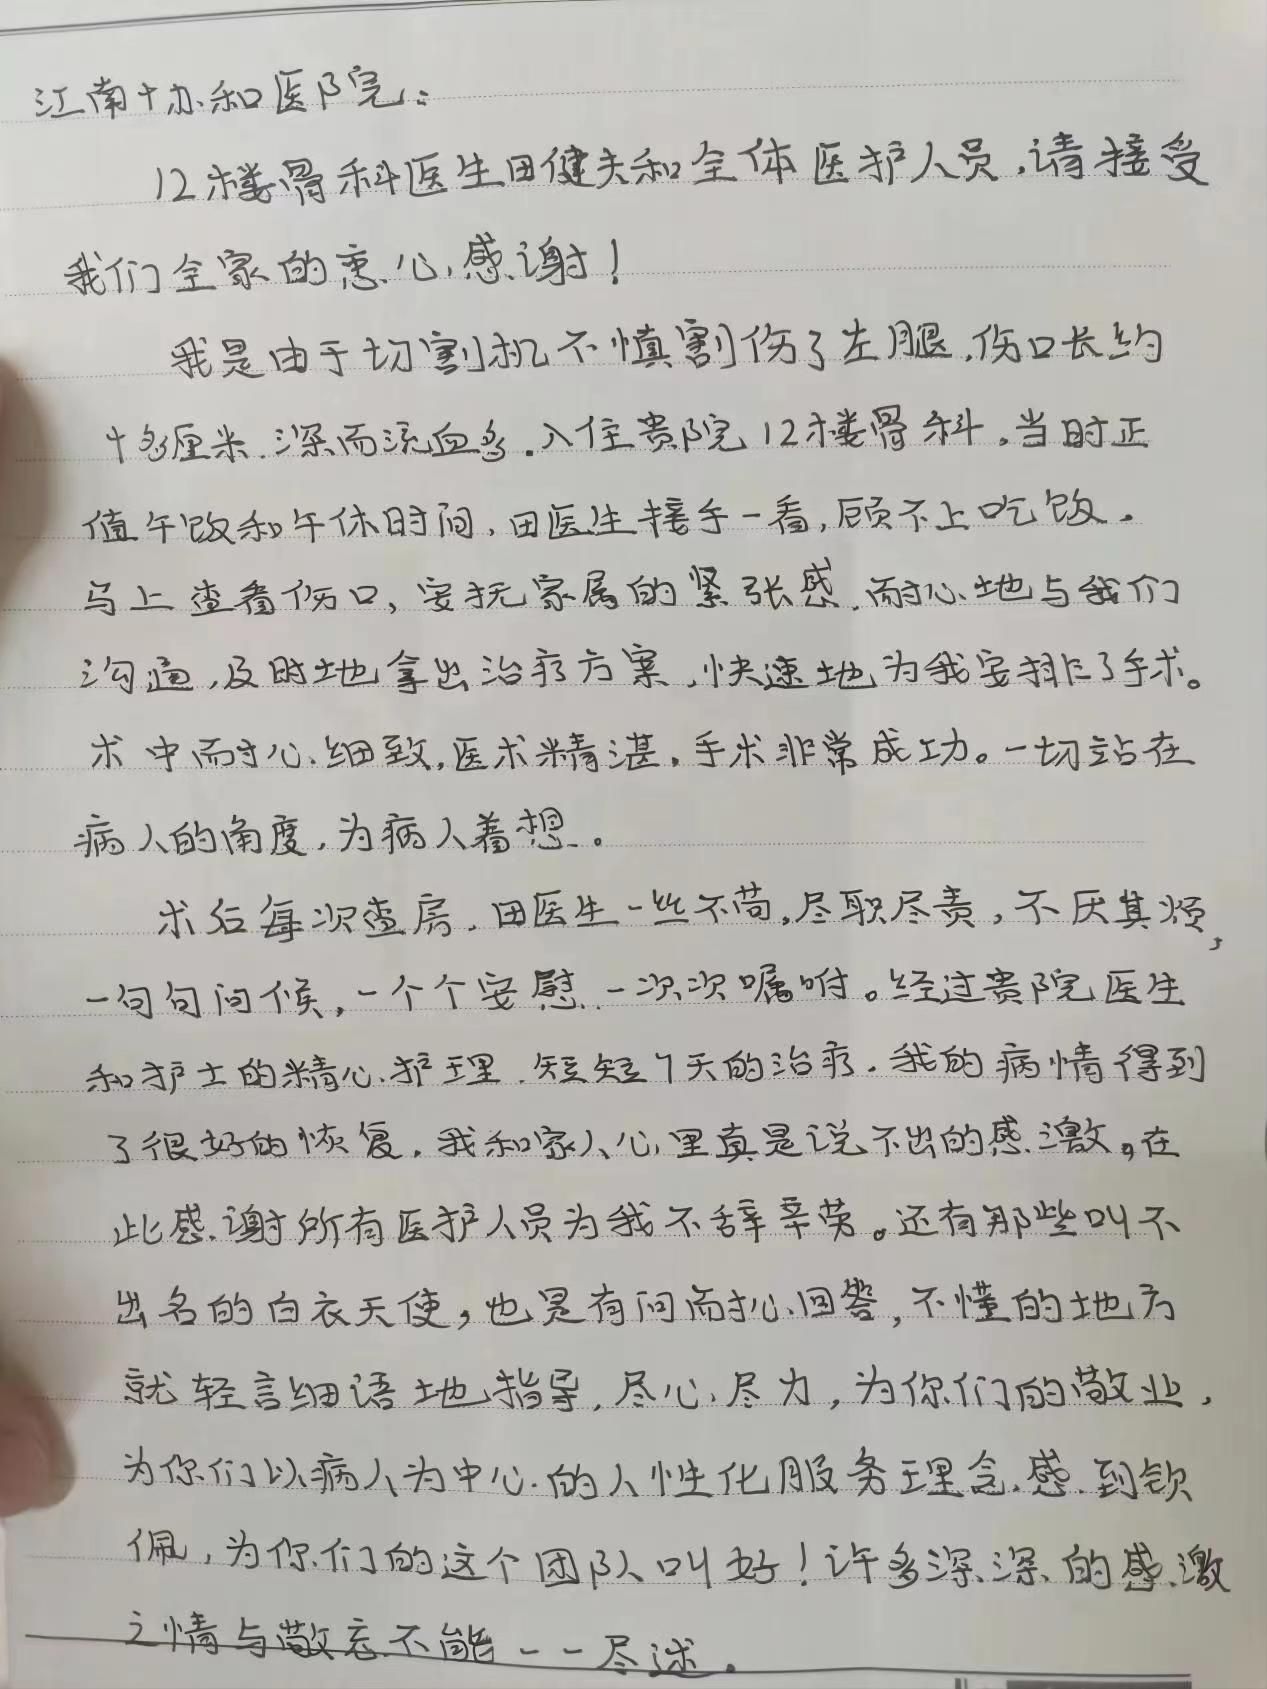 江南协和医院：
12楼骨科医生田健夫和全体医护人员，请接受
我们全家的衷心感谢！
我是由于切割机不慎割伤了左腿，伤口长约
十多厘米，深而流血多，入住贵院12楼骨科，当时正
值午饭和午休时间，田医生接手一看，顾不上吃饭，
马上查看伤口，安抚家属的紧张感，耐心地与我们
沟通，及时地拿出治疗方案，快速地为我安排了手术。
术中耐心细致，医术精湛，手术非常成功。一切站在
病人的角度，为病人着想。
术后每次查房，田医生一丝不苟，尽职尽责，不厌其烦，
一句句问候，一个个安慰，一次次嘱咐。经过贵院医生
和护士的精心护理，短短7天的治疗，我的病情得到
了很好的恢复，我和家人心里真是说不出的感激。在
此感谢所有医护人员为我不辞辛劳。还有那些叫不
出名的白衣天使，也是有问耐心回答，不懂的地方
就轻言细语地指导，尽心尽力，为你们的敬业，
为你们以病人为中心的人性化服务理念感到钦
佩，为你们的这个团队叫好！许多深深的感激
之情与敬意不能一一尽述。